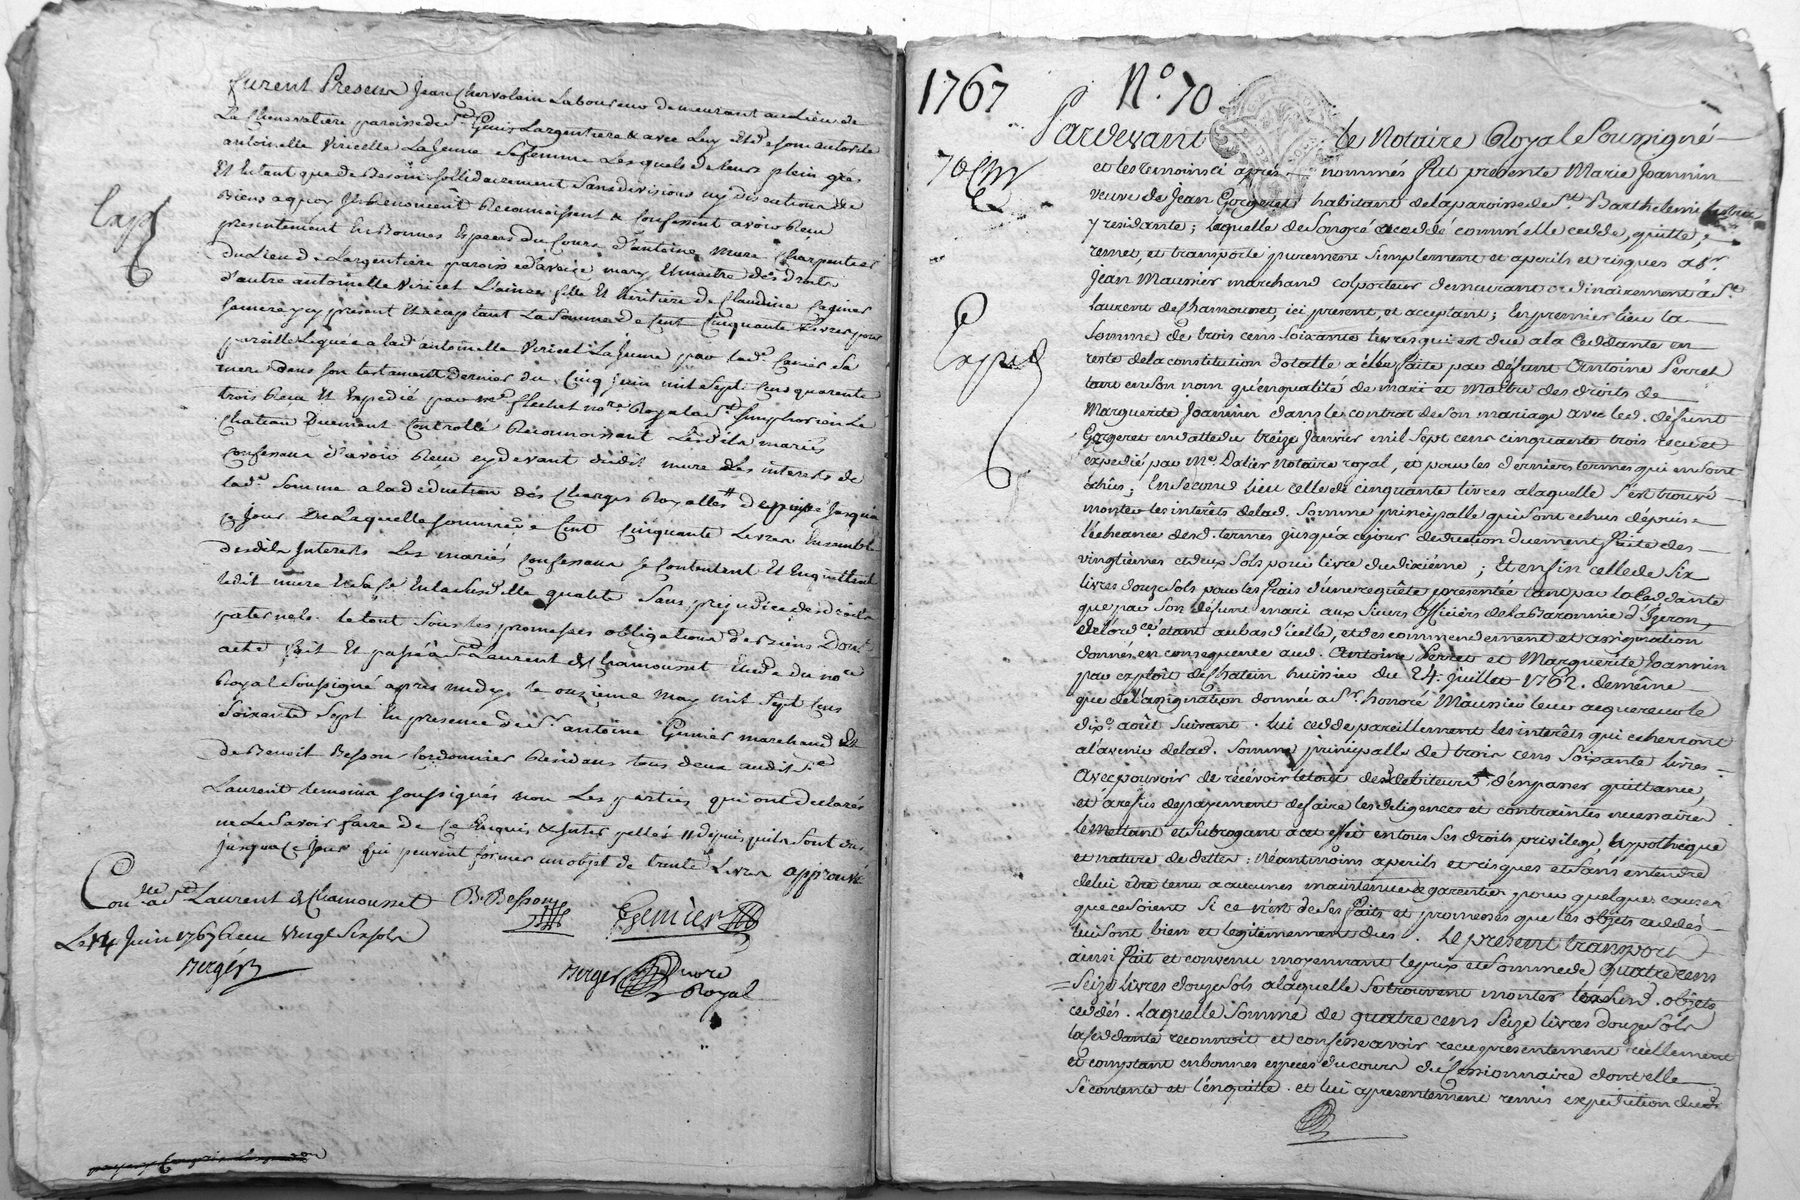 furent Presens Jean Chervolain Laboureur demeurant au Lieu de
La Chenevatiere paroisse de St Genis Largentiere & avec Luy et de son autorité
antoinette Viricelle La Jeune Sa femme Lesquels de leurs plein gré
Et En tant que de Besoin sollidairement Sans division ny discution de
Biens a quoy Ils Renoncent Reconnoissent & Confessent avoir Reçu
presentement En Bonnes Especes du Cours d'antoine mure Charpentier
du Lieu de Largentiere paroisse d'aveize mary Et maitre des droits
d'autre antoinette Viricel L'ainée fille Et héritière de Claudine
y present Et acceptant La Somme de Cent Cinquante Livres pour
pareille Leguée a lad. antoinette Viricel La Jeune par lad. Sa
mere dans son testament dernier du Cinq Juin mil Sept Cens quarente
trois Recu Et Expedié par Me flechet nore Royal a St Simphorien Le
Chateau Duement Controllé Reconnoissant Lesdits mariés
Confessant d'avoir Reçu cy devant dudit mure Les interests de
lad. Somme a la deduction des Charges Royalles # depuis Jusqu'à
ce Jour De Laquelle Somme de Cent Cinquante Livres Ensemble
desdits Interests Les mariés Confessans Se Contentent Et Enquittent
ledit mure Et Sa fe En lad. qualité Sans prejudice des droits
paternels. le tout Sous Les promesses obligations de Biens Dont
acte fait Et passé à St Laurent de Chamousset Etude du nore
Royal Soussigné après midy le onzième May mil Sept Cens
Soixante Sept En presence de Sr antoine Grenier marchand Et
de Benoit Besson Cordonnier Residans tous deux audit St
Laurent temoins soussignés non Les parties qui ont declarés
ne Le Savoir faire de Ce Enquis & Inter pellés // depuis qu'ils Sont dus
jusqu'a ce Jour qui peuvent former un objet de trente Livres approuvé
Con. a St Laurent de Chamousset
B. Besson
Grenier
Le 14 Juin 1767 Recu Vingt Six Sols
Berger
Berger
Nore
Royal
Exp
1767 No. 70
Pardevant le Notaire Royal Soussigné
70
et les temoins ci après nommés fut presente Marie Joannin
veuve de Jean Gorgeret habitant de la paroisse de St Barthelemi
y residante; laquelle de Son gré a cedé comm'elle cedde, quitte,
remet, et transporte purement Simplement et a perils et risques a Sr.
Jean Maunier marchand colporteur demeurant ordinairement à St
Laurent de Chamousset, ici present, et aceptant; En premier lieu la
Exped
Somme de trois cens Soixante livres qui est due a la Ceddante en
reste de la constitution dotalle a elle faite par défunt Antoine Perret
tant en Son nom qu'en qualité de mari et Maitre des droits de
Marguerite Joannin dans le contrat de Son mariage avec led. défunt
Gorgeret en datte du treize Janvier mil Sept cens cinquante trois reçu et
expedié par Me. Dalier Notaire royal, et pour les derniers termes qui en Sont
echus; En Second lieu celle de cinquante livres a laquelle S'est trouvé
monter les intérêts de lad. Somme principalle qui Sont echus depuis
l'écheance desd. termes jusqu'à ce jour deduction duement faite des
vingtièmes et deux Sols pour livre du dixième; Et enfin celle de Six
livres douze Sols pour les frais d'une requête presentée tant par la Ceddante
que par Son défunt mari aux Sieurs Officiers de la Baronnie d'Izeron,
de l'ord.ce etant au bas d'icelle, et des commendement et assignation
donnés en consequence aud. Antoine Perret et Marguerite Joannin
par exploit de Chatain huissier du 24. juillet 1762. de même
que de l'assignation donnée a Sr. honoré Maunier leur acquereur le
dixe. août Suivant. Lui cedde pareillement les intérêts qui echerront
a l'avenir de lad. Somme principalle de trois cens Soixante livres
Avec pouvoir de recevoir le tout des debiteurs, d'en passer quittance,
et a refus de payement de faire les diligences et contraintes necessaires
le mettant et Subrogeant a cet effet en tous Ses droits privilege, hypotheque
et nature de dettes; Néantmoins a perils et risques et Sans entendre
de lui être tenu a aucunes maintenue & garentie pour quelques causes
que ce Soient Si ce n'est de Ses faits et promesses que les objets ceddés
lui Sont bien et legitimement dus. Le present transport
ainsi fait et convenu moyennant le prix et Somme de Quatre cens
Seize livres douze Sols a laquelle Se trouvent monter lesd. objets
ceddés. Laquelle Somme de quatre cens Seize livres douze Sols
la Ceddante reconnoit et confesse avoir reçue presentement réellement
et comptant en bonnes especes du cours du Cessionnaire dont elle
Se contente et l'en quitte. et lui a presentement remis expedition dud.